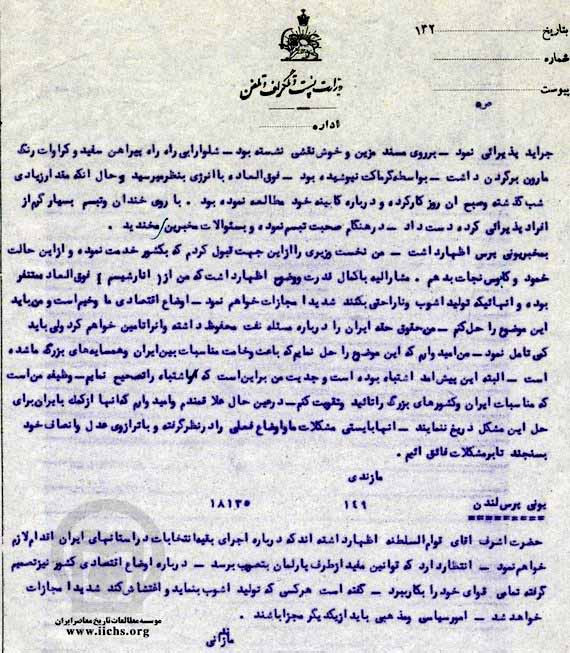 بتاریخ ۱۳۲
شماره
پیوست
وزارت پست و تلگراف و تلفن
اداره
جراید پذیرائی نمود — برروی مسند مزین و خوش نقشی نشسته بود — شلوارابی راه راه پیراهن سفید و کراوات رنگ
مارون برگردن داشت — بواسطه گرماکت نپوشیده بود — فوق العاده باانرژی بنظرمیرسید و حال انکه مقدارزیادی
شب گذشته وصبح ان روز کارکرده و درباره کابینه خود مطالعه نموده بود . با روی خندان وتبسم بسیار گرم از
افراد پذیرائی کرده دست داد — درهنگام صحبت تبسم نموده و بسئوالات مخبرین میخندید .
بمخبریونی پرس اظهارداشت — من نخست وزیری راازاین جهت قبول کردم که بکشور خدمت نموده و ازاین حالت
خمود و کابوس نجات بدهم . مشارالیه باکمال قدرت ووضوح اظهارداشت که من از ( انارشیسم ) فوق العاد متنفر
بوده و انهائیکه تولید اشوب وناراحتی بکنند شدیدا مجازات خواهم نمود — اوضاع اقتصادی ما وخیم است و من باید
این موضوع را حل کنم — من حقوق حقه ایران را درباره مسئله نفت محفوظ داشته وانراتامین خواهم کرد ولی باید
کمی تامل نمود — من امیدوارم که این موضوع را حل نمایم که باعث وخامت مناسبات بین ایران وهمسایه های بزرگ ماشده
است — البته این پیش امد اشتباه بوده است و جدیت من براین است که اشتباه راتصحیح نمایم — وظیفه من است
که مناسبات ایران وکشورهای بزرگ راتائید وتقویت کنم — درعین حال علاقمندم وامیدوارم که انها ازکمک بایران برای
حل این مشکل دریغ ننمایند — انهابایستی مشکلات ماواوضاع فعلی رادرنظرگرفته و باترازوی عدل وانصاف خود
بسنجند تابرمشکلات فائق ائیم .
مازندی
یونی پرس لندن ۱۴۹ ۱۸۱۳۵
حضرت اشرف اقای قوام السلطنه اظهارداشته اند که درباره اجرای بقیه انتخابات دراستانهای ایران اقدام لازم
خواهم نمود — انتظاردارد که قوانین مفید ازطرف پارلمان بتصویب برسد — درباره اوضاع اقتصادی کشور نیزتصمیم
گرفته تمامی قوای خود رابکاربرد — گفته است هرکسی که تولید اشوب بنماید و اغتشاش کند شدیدا مجازات
خواهد شد — امورسیاسی ومذهبی باید ازیکدیگر مجزاباشند .
مازانی
موسسه مطالعات تاریخ معاصر ایران
www.iichs.org